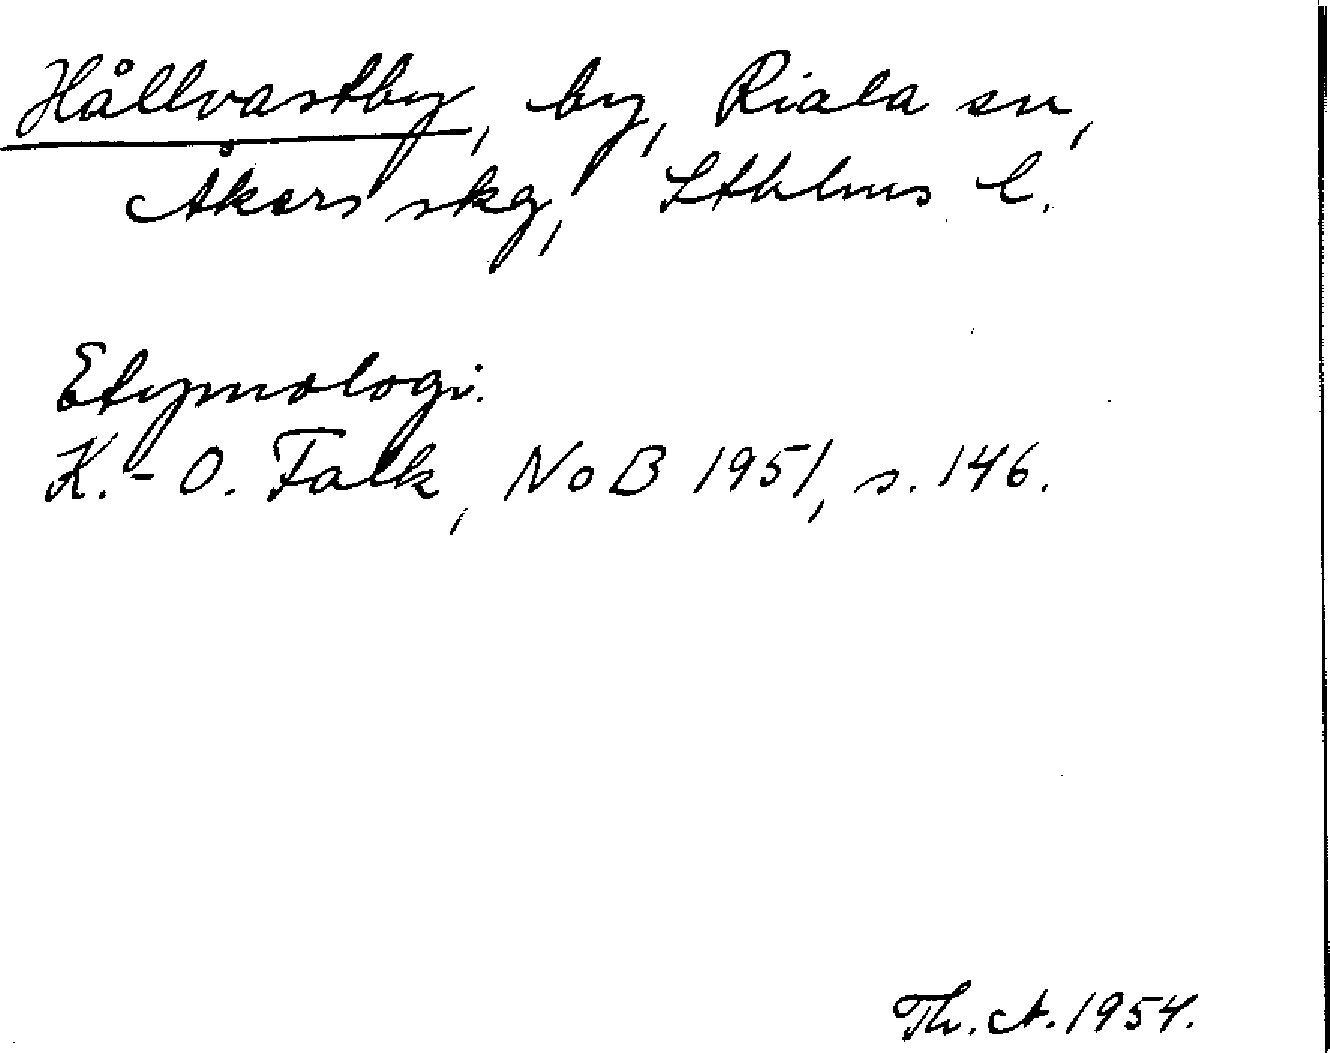 Hållvastby, by, Riala sn,
Åkers skg, Sthlms l.
Etymologi.
K.-O. Falk, NoB 1951, s. 146.
Th. A. 1954.